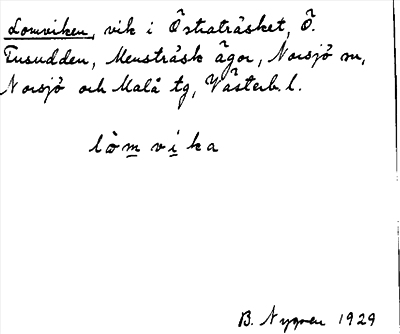 Lomviken, vik i Östraträsket, Ö.
Tusudden, Mensträsk ägor, Norsjö sn,
Norsjö och Malå tg, Västerb. l.
lò̀m vi̲ka
B. Nygren 1929